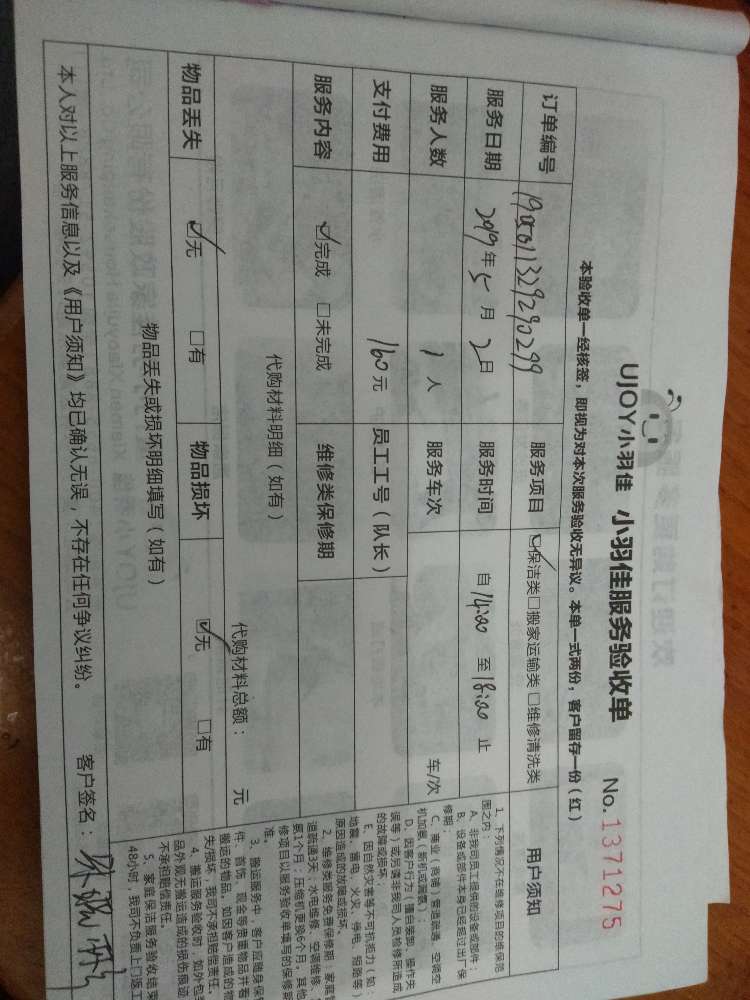 UJOY小羽佳 小羽佳服务验收单 No. 1371275
本验收单一经核签，即视为对本次服务验收无异议。本单一式两份，客户留存一份（红）
订单编号 服务项目 ☑保洁类 □搬家运输类 □维修清洗类 用户须知
服务日期 2019年5月2日 服务时间 自14:00至18:00止
服务人数 1人 服务车次 车/次
支付费用 160元 员工工号（队长）
服务内容 ☑完成 □未完成 维修类保修期
代购材料明细（如有）
代购材料总额： 元
物品丢失 ☑无 □有 物品损坏 ☑无 □有
物品丢失或损坏明细填写（如有）
本人对以上服务信息以及《用户须知》均已确认无误，不存在任何争议纠纷。 客户签名：
1、下列情况不在维修项目的维保范
围之内：
A、非我司员工提供的设备或部件；
B、设备或部件本身已经超过出厂保
修期；
C、商业（商铺）管道疏通、空调空
机加氨（新机或漏氨）；
D、因客户行为（擅自装卸、操作失
误等）或另请非我司人员检修所造成
的故障或损坏；
E、因自然灾害等不可抗拒力（如：
地震、雷电、火灾、停电、短路等）
原因造成的故障或损坏。
2、维修类服务免费保修期：家庭管
道疏通3天；水电维修、空调维修、
氨1个月；压缩机更换6个月，其他
修项目以服务验收单填写的保修期
准。
3、搬运服务中，客户应随身保
件、首饰、现金等贵重物品并看
搬运的物品，如因客户造成的物
失/损坏，我司不承担赔偿责任。
4、搬运服务验收时，如外包装
品外观无搬运造成的损伤痕迹
不承担赔偿责任。
5、家庭保洁服务验收结束
48小时，我司不负责上门返工